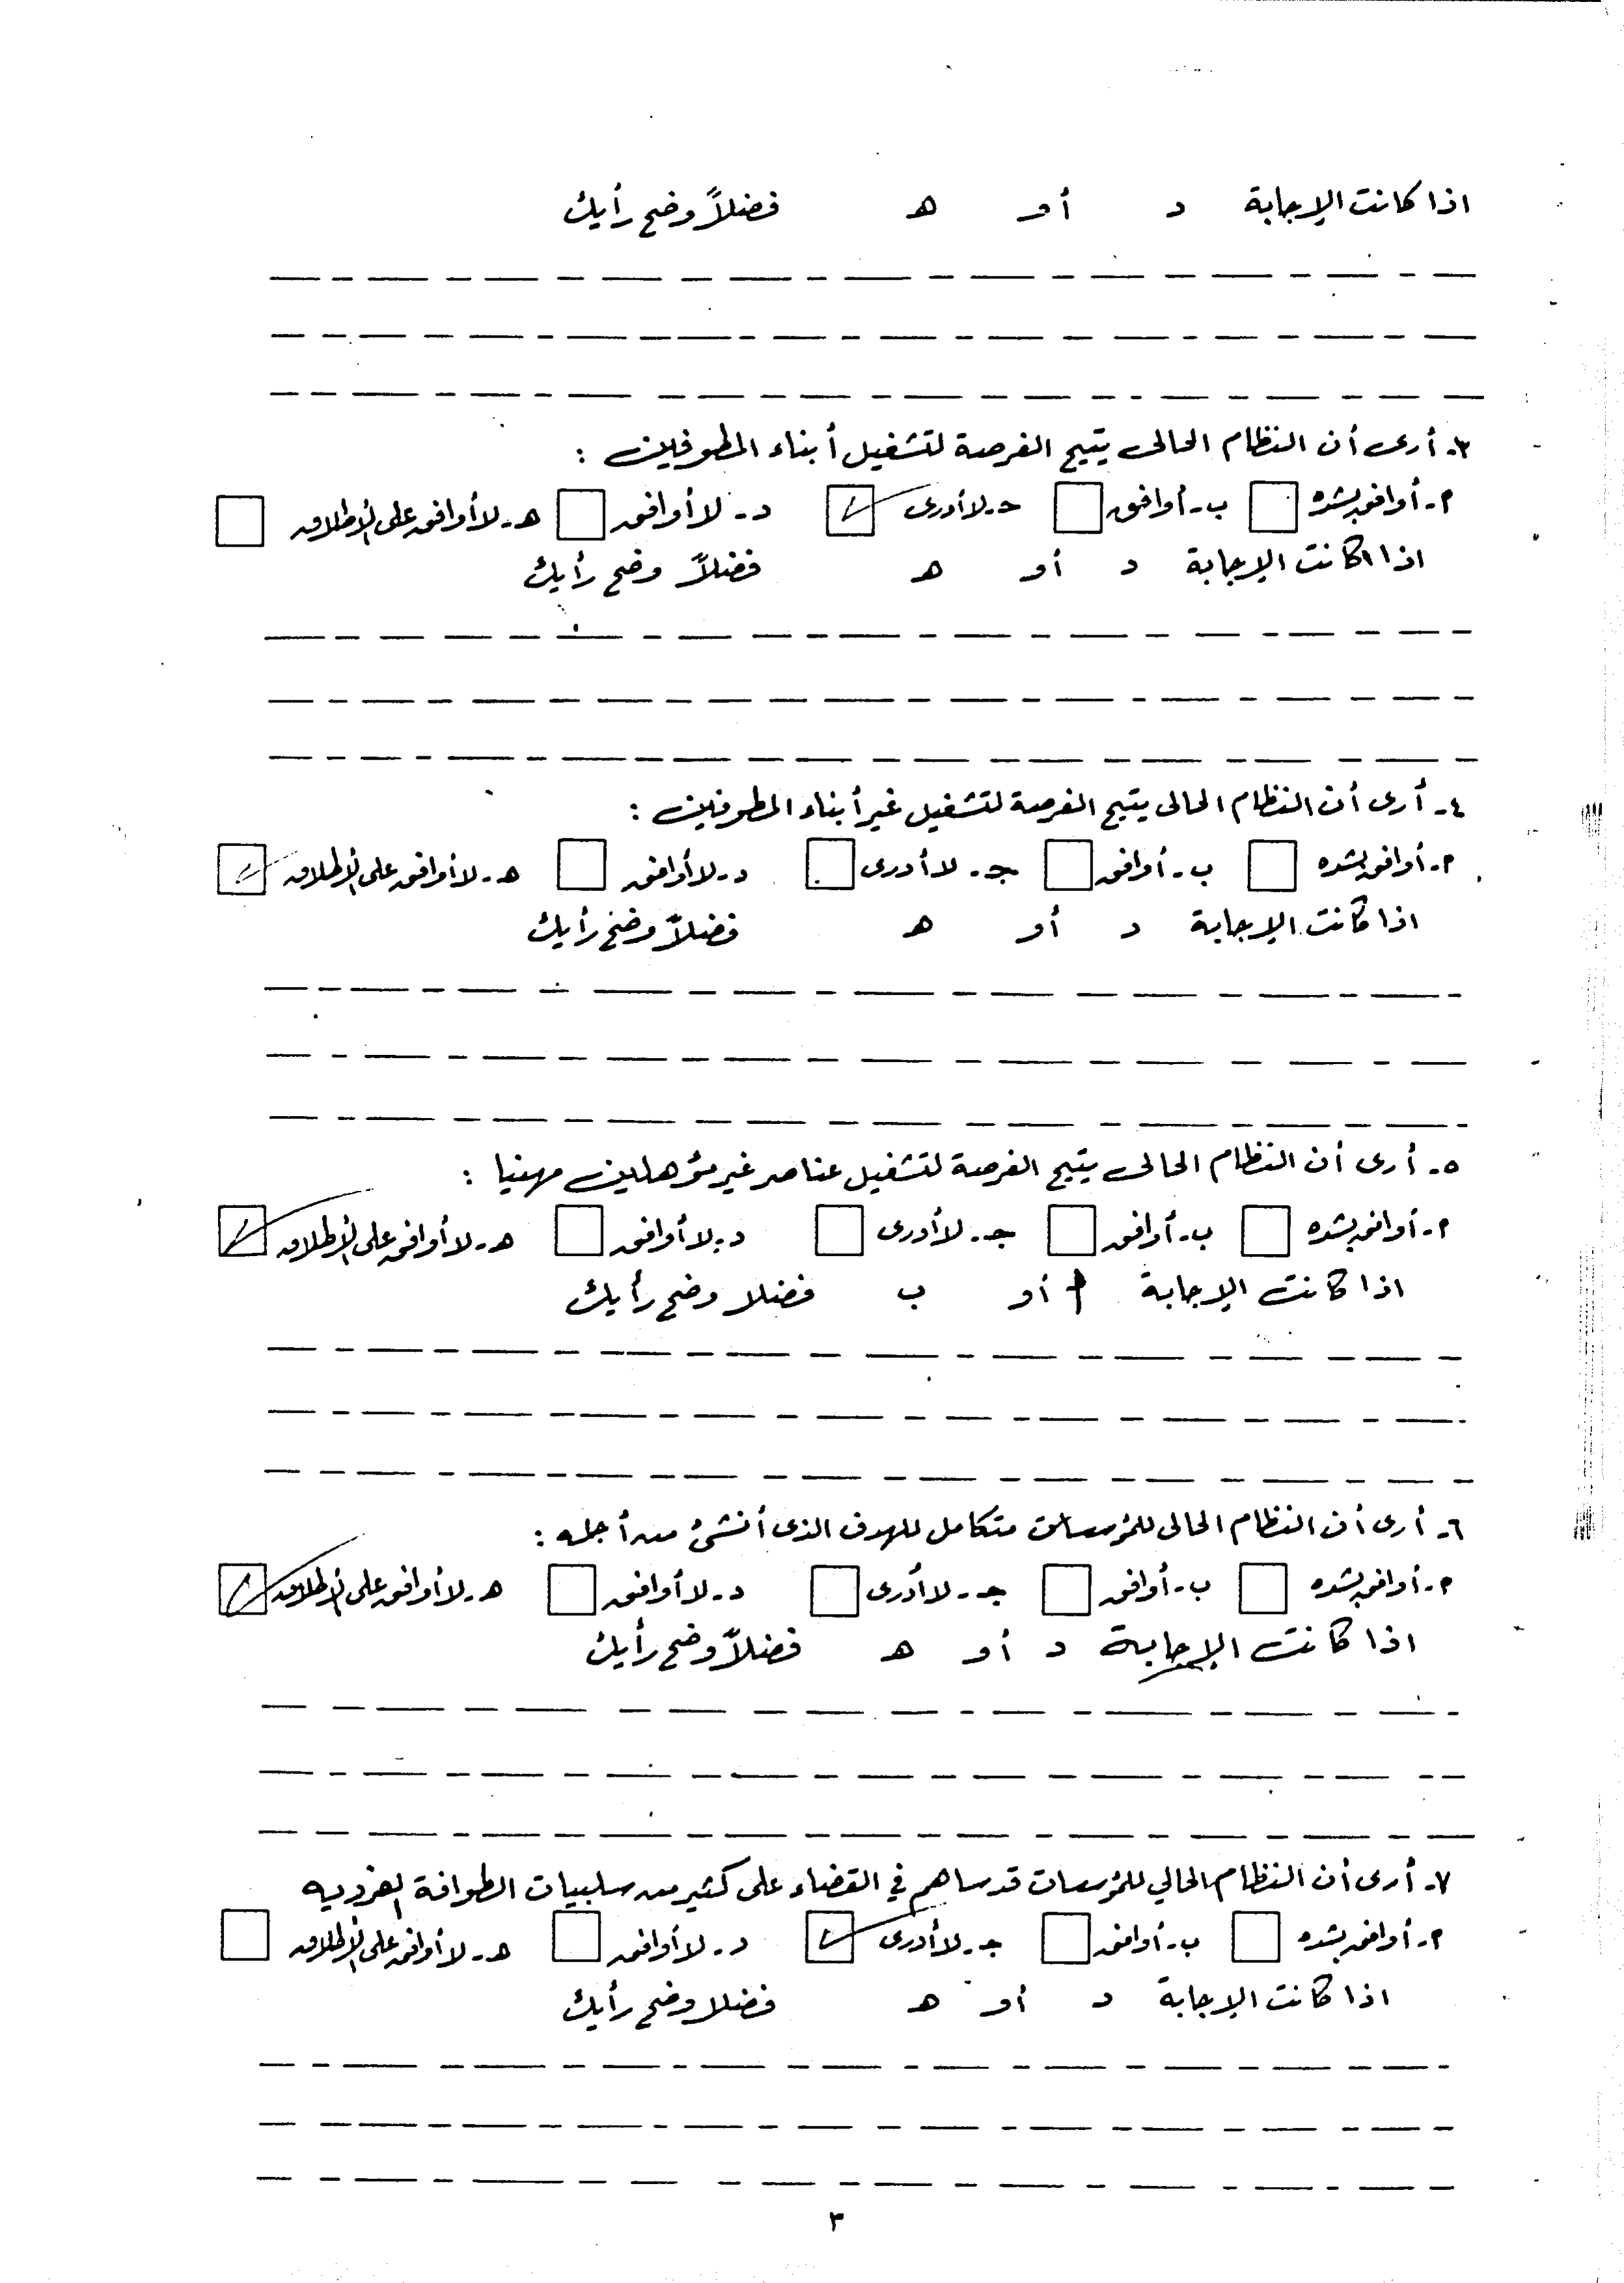 اذا كانت الإجابة د أو هـ فضلاً وضح رأيك
٣- أرى أن النظام الحالى يتيح الفرصة لتشغيل أبناء المطوفين :
٢- أوافق بشده ب- أوافق حـ- لا أدرى د- لا أوافق هـ- لا أوافق على الإطلاق
اذا اكانت الإجابة د أو هـ فضلاً وضح رأيك
٤- أرى أن النظام الحالى يتيح الفرصة لتشغيل غير أبناء المطوفين :
٢- أوافق بشده ب- أوافق جـ- لا أدرى د- لا أوافق هـ- لا أوافق على الإطلاق
اذا كانت الإجابة د أو هـ فضلاً وضح رأيك
٥- أرى أن النظام الحالى يتيح الفرصة لتشغيل عناصر غير مؤهلين مهنيا :
٢- أوافق بشده ب- أوافق جـ- لا أدرى د- لا أوافق هـ- لا أوافق على الإطلاق
اذا كانت الإجابة أ أو ب فضلا وضح رأيك
٦- أرى أن النظام الحالى للمؤسسات متكامل للهدف الذى أنشئ من أجله :
٢- أوافق بشده ب- أوافق جـ- لا أدرى د- لا أوافق هـ- لا أوافق على الإطلاق
اذا كانت الإجابة د أو هـ فضلاً وضح رأيك
٧- أرى أن النظام الحالي للمؤسسات قد ساهم في القضاء على كثير من سلبيات الطوافة الفرديه
٢- أوافق بشده ب- أوافق جـ- لا أدرى د- لا أوافق هـ- لا أوافق على الإطلاق
اذا كانت الإجابة د أو هـ فضلا وضح رأيك
٣